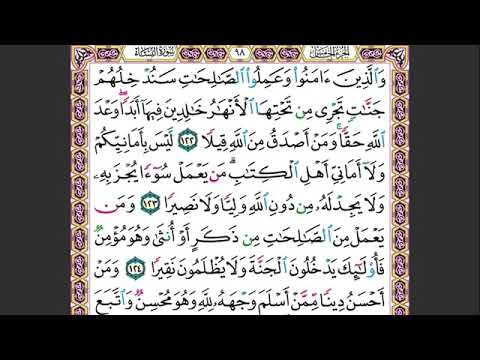 سُورَةُ النِّسَاءِ ٩٨ الجُزءُ الخَامِسُ
وَٱلَّذِينَ ءَامَنُوا۟ وَعَمِلُوا۟ ٱلصَّـٰلِحَـٰتِ سَنُدْخِلُهُمْ
جَنَّـٰتٍ تَجْرِى مِن تَحْتِهَا ٱلْأَنْهَـٰرُ خَـٰلِدِينَ فِيهَآ أَبَدًا ۖ وَعْدَ
ٱللَّهِ حَقًّا ۚ وَمَنْ أَصْدَقُ مِنَ ٱللَّهِ قِيلًا ١٢٢ لَّيْسَ بِأَمَانِيِّكُمْ
وَلَآ أَمَانِىِّ أَهْلِ ٱلْكِتَـٰبِ ۗ مَن يَعْمَلْ سُوٓءًا يُجْزَ بِهِۦ
وَلَا يَجِدْ لَهُۥ مِن دُونِ ٱللَّهِ وَلِيًّا وَلَا نَصِيرًا ١٢٣ وَمَن
يَعْمَلْ مِنَ ٱلصَّـٰلِحَـٰتِ مِن ذَكَرٍ أَوْ أُنثَىٰ وَهُوَ مُؤْمِنٌ
فَأُو۟لَـٰٓئِكَ يَدْخُلُونَ ٱلْجَنَّةَ وَلَا يُظْلَمُونَ نَقِيرًا ١٢٤ وَمَنْ
أَحْسَنُ دِينًا مِّمَّنْ أَسْلَمَ وَجْهَهُۥ لِلَّهِ وَهُوَ مُحْسِنٌ وَٱتَّبَعَ